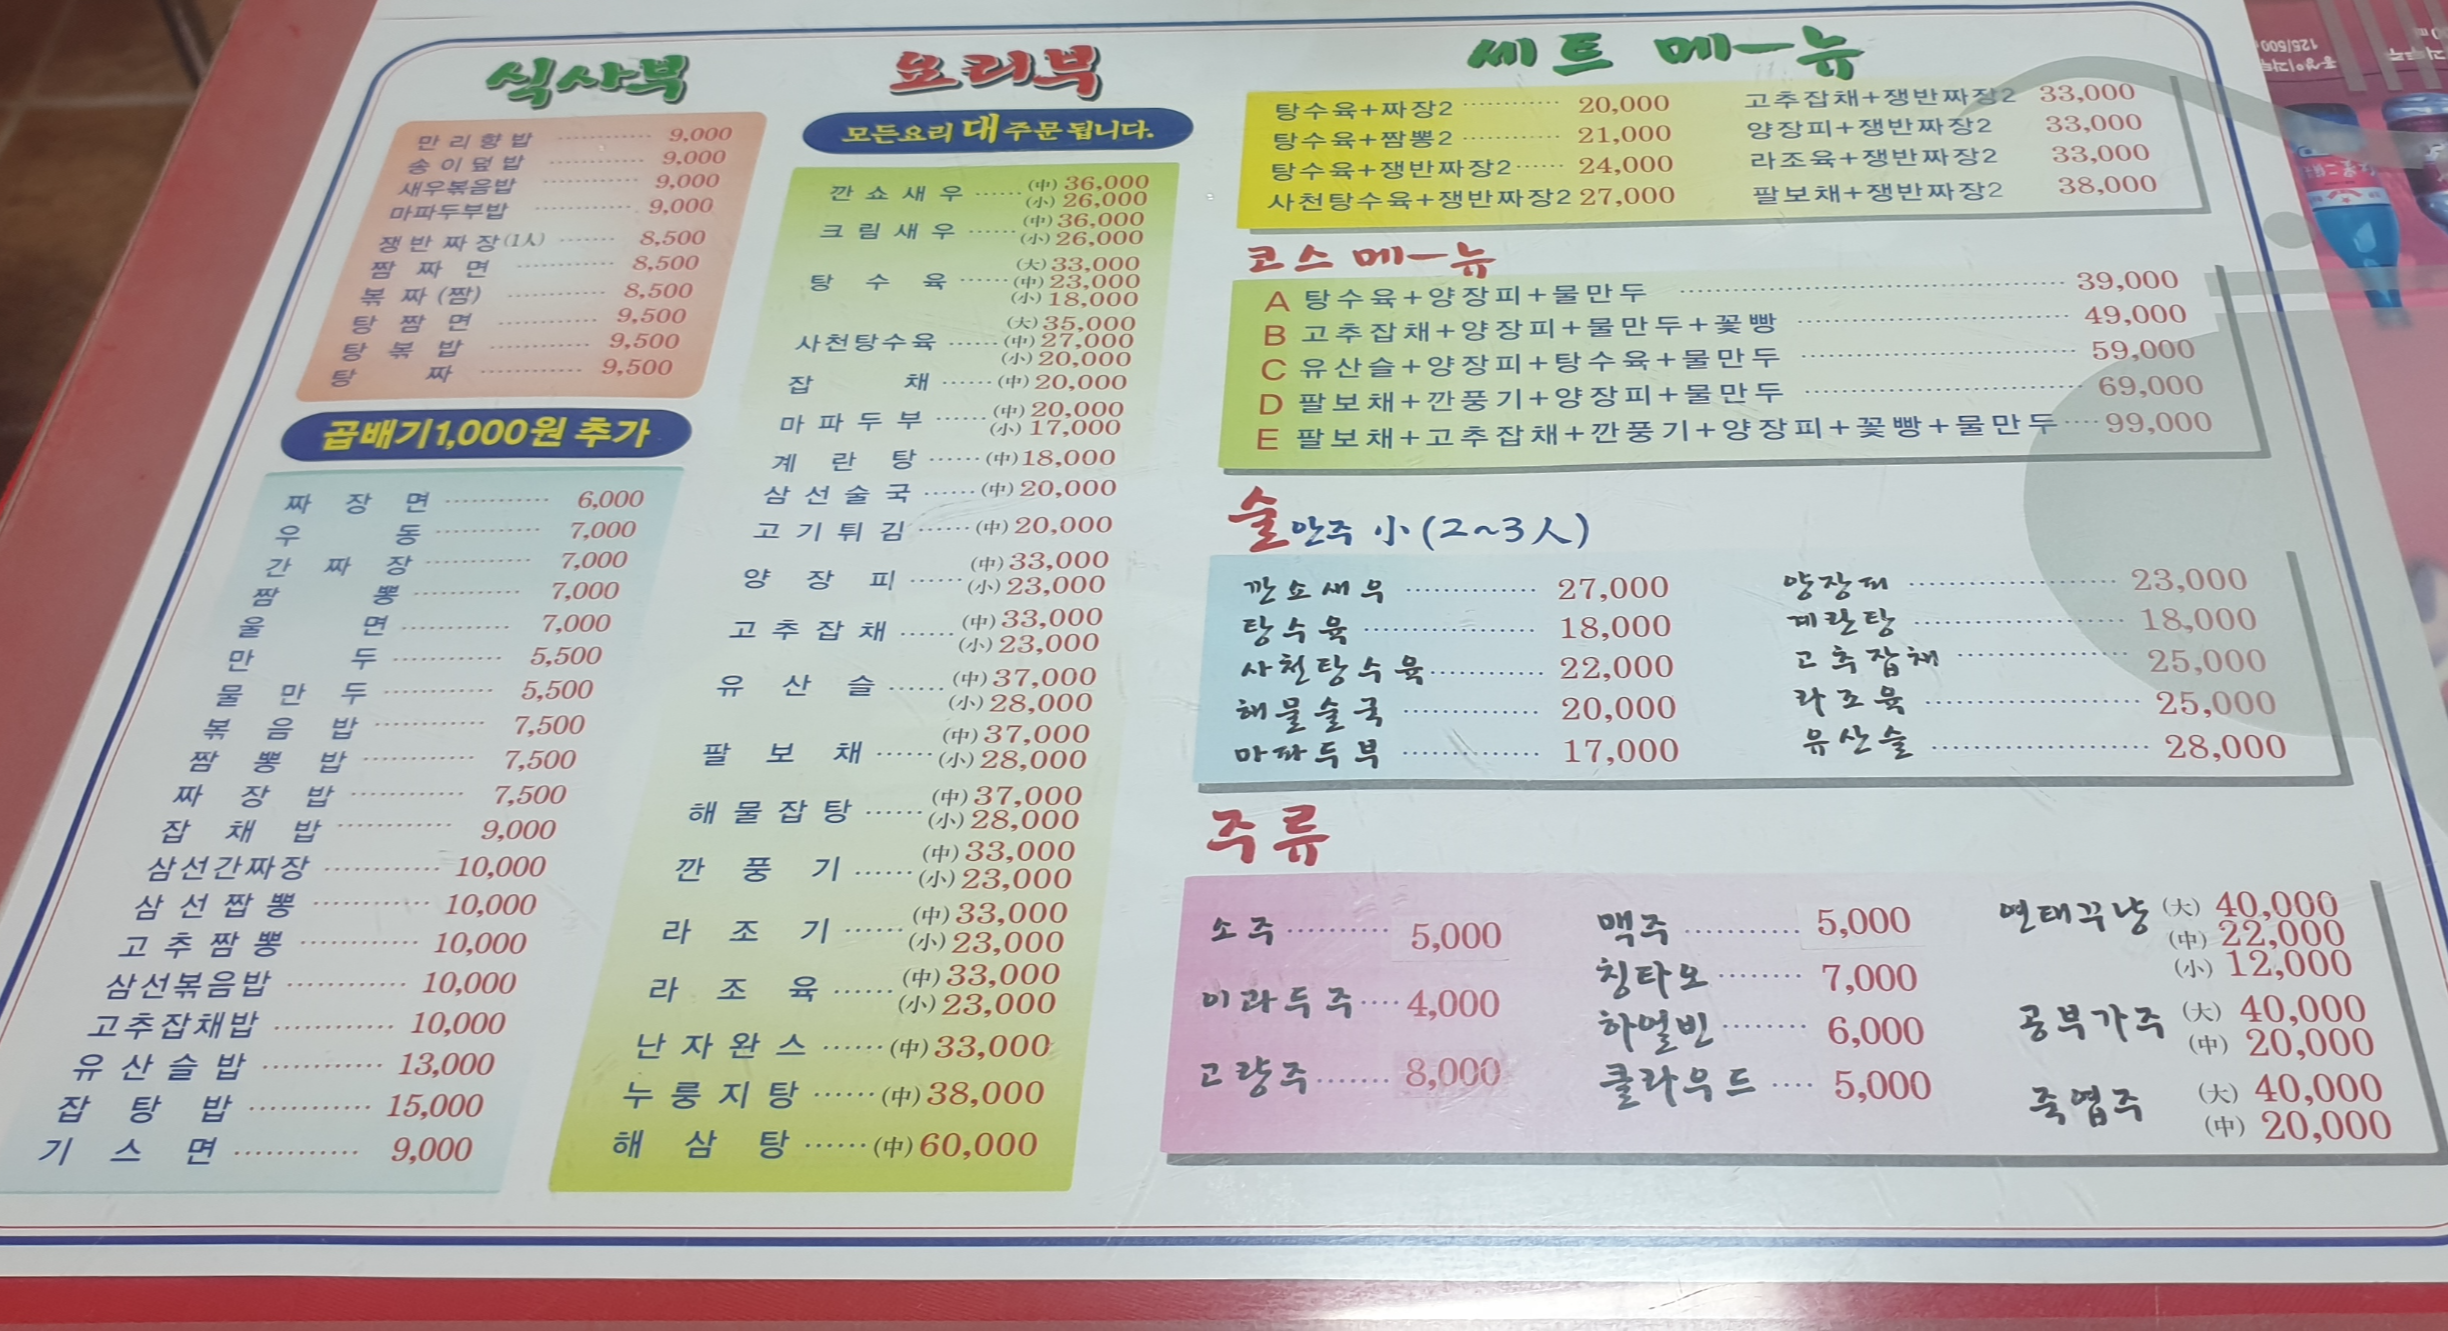 식사부
만리향밥 ············ 9,000
송이덮밥 ············ 9,000
새우볶음밥 ············ 9,000
마파두부밥 ············ 9,000
쟁반짜장(1人) ······· 8,500
짬짜면 ············ 8,500
볶짜(짬) ············ 8,500
탕짬면 ············ 9,500
탕볶밥 ············ 9,500
탕짜 ············ 9,500
곱배기1,000원 추가
짜장면 ············ 6,000
우동 ············ 7,000
간짜장 ············ 7,000
짬뽕 ············ 7,000
울면 ············ 7,000
만두 ············ 5,500
물만두 ············ 5,500
볶음밥 ············ 7,500
짬뽕밥 ············ 7,500
짜장밥 ············ 7,500
잡채밥 ············ 9,000
삼선간짜장 ············ 10,000
삼선짬뽕 ············ 10,000
고추짬뽕 ············ 10,000
삼선볶음밥 ············ 10,000
고추잡채밥 ············ 10,000
유산슬밥 ············ 13,000
잡탕밥 ············ 15,000
기스면 ············ 9,000
요리부
모든요리 대 주문 됩니다.
깐쇼새우 ······ (中) 36,000
(小) 26,000
크림새우 ······ (中) 36,000
(小) 26,000
탕수육 ······ (大) 33,000
(中) 23,000
(小) 18,000
사천탕수육 ······ (大) 35,000
(中) 27,000
(小) 20,000
잡채 ······ (中) 20,000
마파두부 ······ (中) 20,000
(小) 17,000
계란탕 ······ (中) 18,000
삼선술국 ······ (中) 20,000
고기튀김 ······ (中) 20,000
양장피 ······ (中) 33,000
(小) 23,000
고추잡채 ······ (中) 33,000
(小) 23,000
유산슬 ······ (中) 37,000
(小) 28,000
팔보채 ······ (中) 37,000
(小) 28,000
해물잡탕 ······ (中) 37,000
(小) 28,000
깐풍기 ······ (中) 33,000
(小) 23,000
라조기 ······ (中) 33,000
(小) 23,000
라조육 ······ (中) 33,000
(小) 23,000
난자완스 ······ (中) 33,000
누룽지탕 ······ (中) 38,000
해삼탕 ······ (中) 60,000
세트 메ー뉴
탕수육+짜장2 ············ 20,000
탕수육+짬뽕2 ············ 21,000
탕수육+쟁반짜장2 ······ 24,000
사천탕수육+쟁반짜장2 27,000
고추잡채+쟁반짜장2 33,000
양장피+쟁반짜장2 33,000
라조육+쟁반짜장2 33,000
팔보채+쟁반짜장2 38,000
코스 메ー뉴
A 탕수육+양장피+물만두 ············ 39,000
B 고추잡채+양장피+물만두+꽃빵 ············ 49,000
C 유산슬+양장피+탕수육+물만두 ············ 59,000
D 팔보채+깐풍기+양장피+물만두 ············ 69,000
E 팔보채+고추잡채+깐풍기+양장피+꽃빵+물만두 ···· 99,000
술안주 小 (2~3人)
깐쇼새우 ············ 27,000
탕수육 ············ 18,000
사천탕수육 ············ 22,000
해물술국 ············ 20,000
마파두부 ············ 17,000
양장피 ············ 23,000
계란탕 ············ 18,000
고추잡채 ············ 25,000
라조육 ············ 25,000
유산슬 ············ 28,000
주류
소주 ·········· 5,000
이과두주 ···· 4,000
고량주 ······· 8,000
맥주 ··········· 5,000
칭타오 ········ 7,000
하얼빈 ········ 6,000
클라우드 ···· 5,000
연태꾸냥 (大) 40,000
(中) 22,000
(小) 12,000
공부가주 (大) 40,000
(中) 20,000
죽엽주 (大) 40,000
(中) 20,000